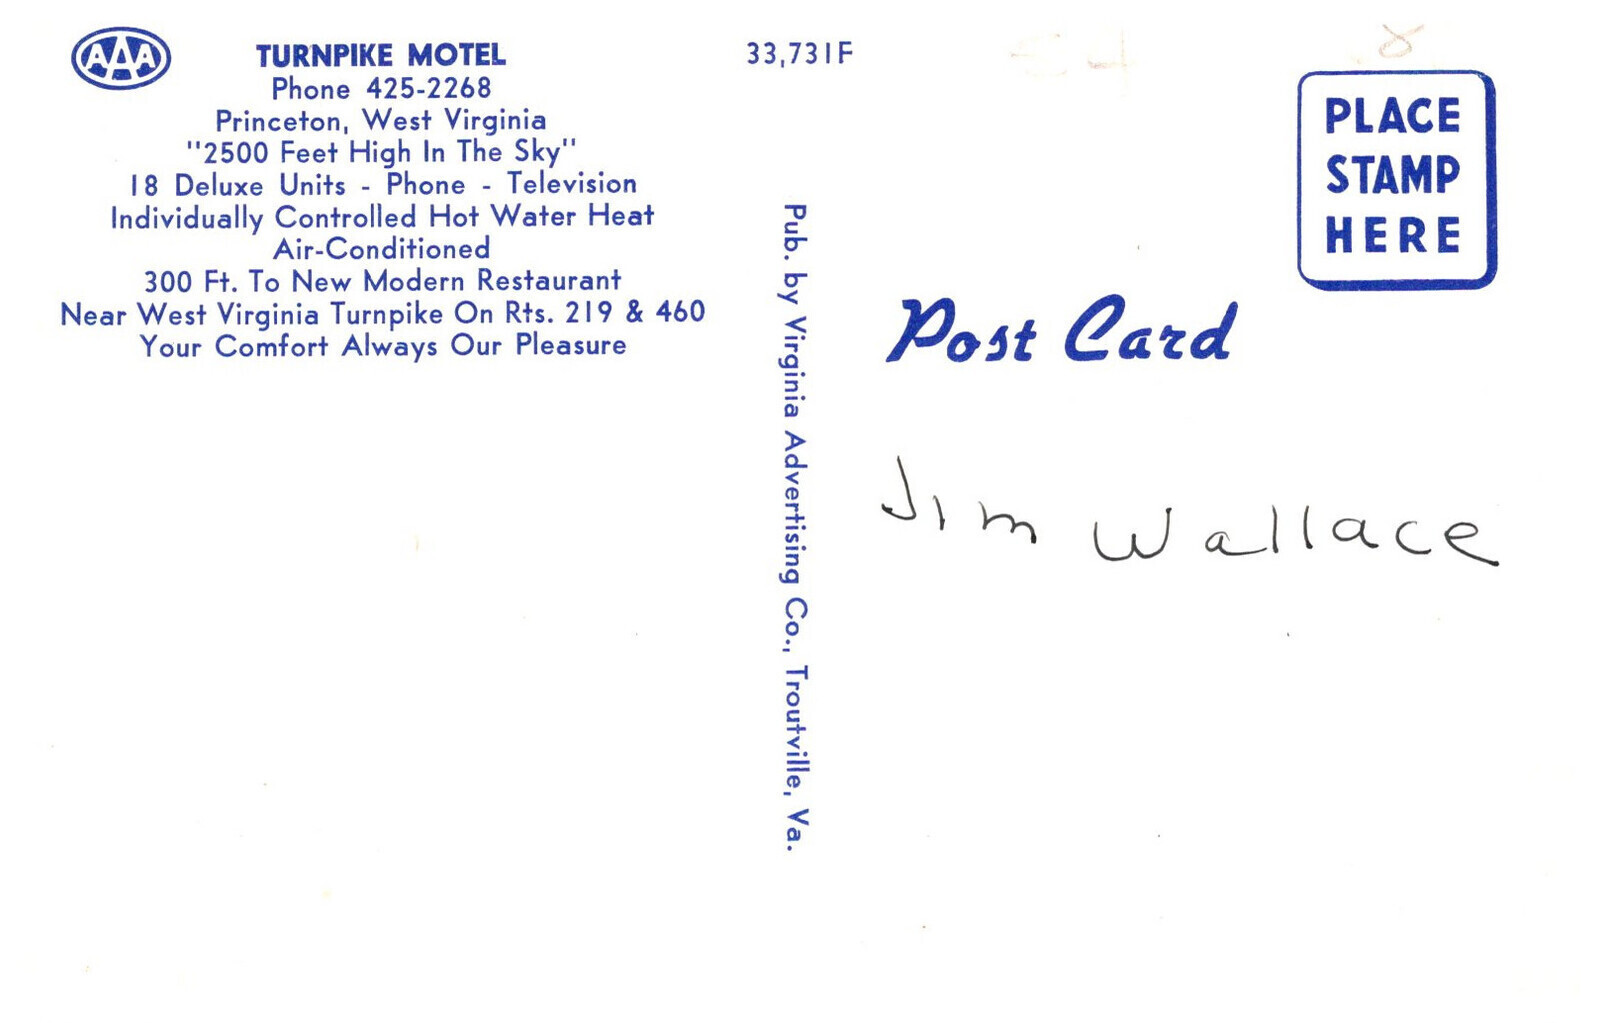 AAA
TURNPIKE MOTEL
Phone 425-2268
Princeton, West Virginia
"2500 Feet High In The Sky"
18 Deluxe Units - Phone - Television
Individually Controlled Hot Water Heat
Air-Conditioned
300 Ft. To New Modern Restaurant
Near West Virginia Turnpike On Rts. 219 & 460
Your Comfort Always Our Pleasure
33,731F
Pub. by Virginia Advertising Co., Troutville, Va.
PLACE
STAMP
HERE
Post Card
Jim Wallace